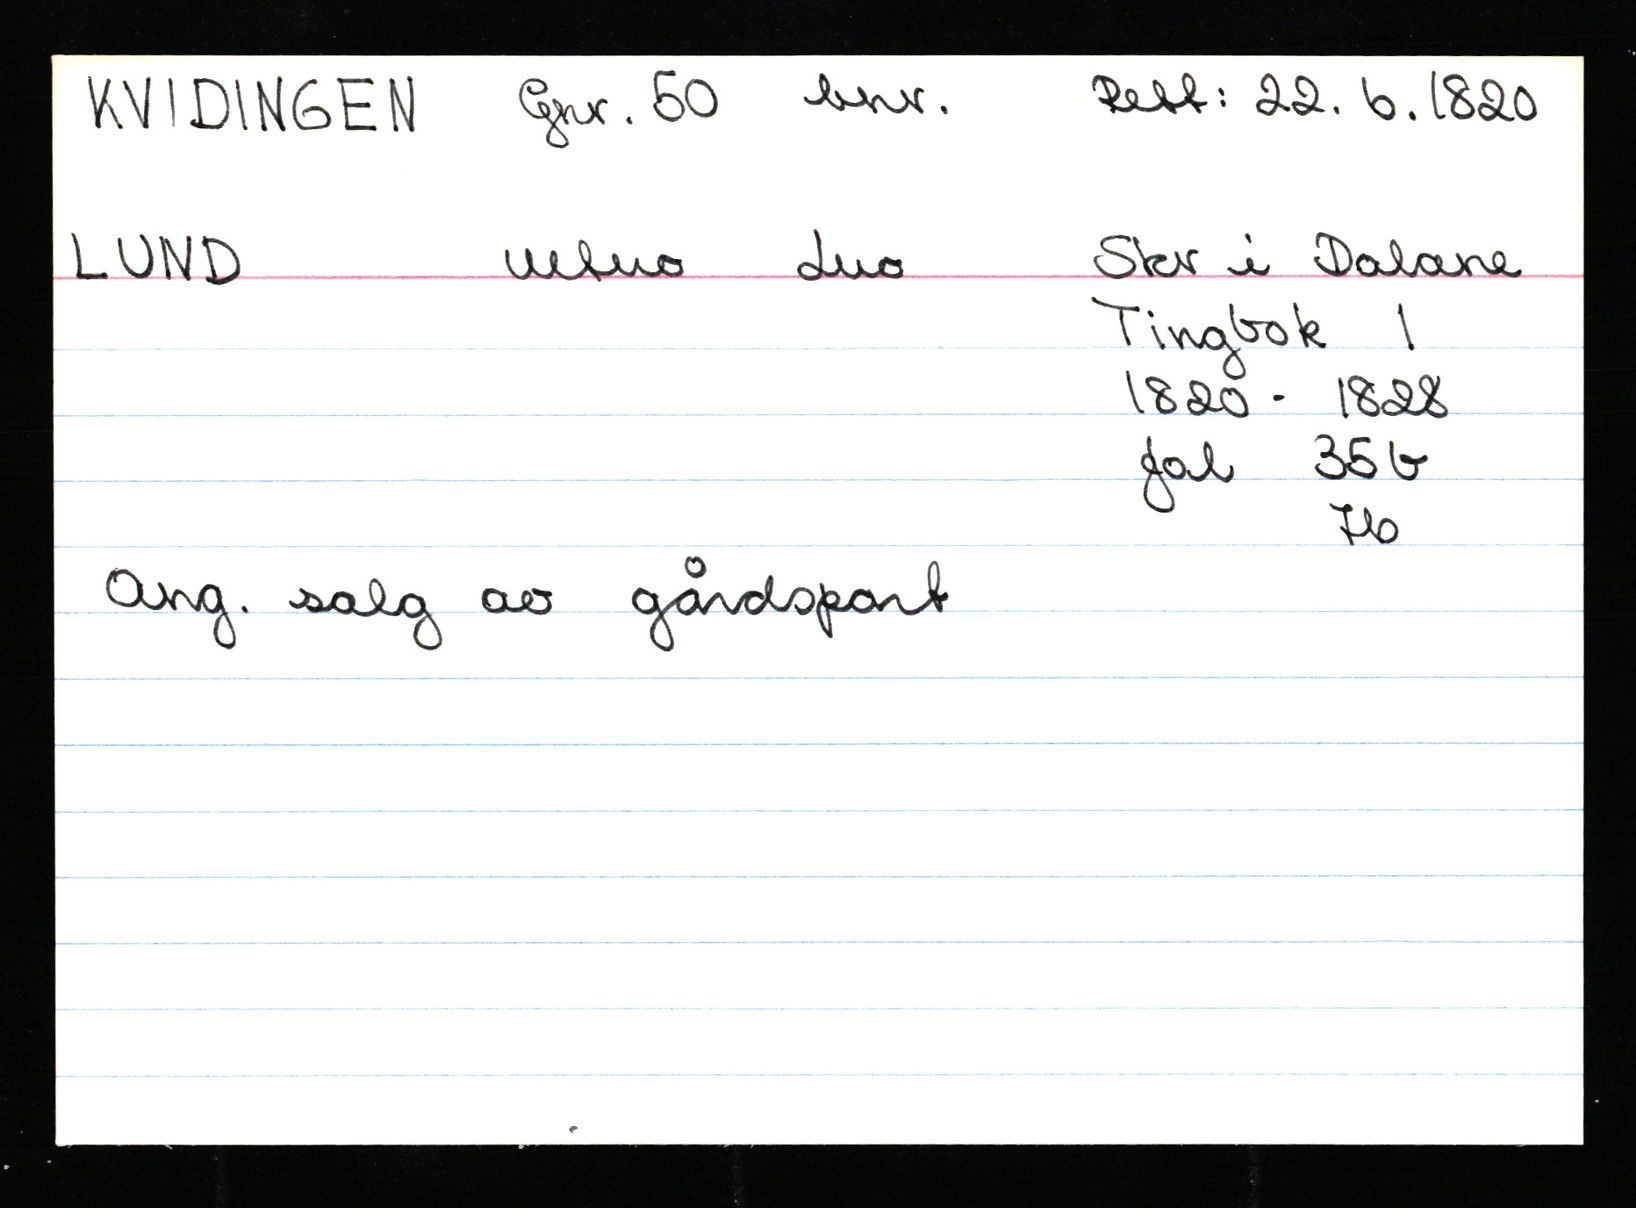 KVIDINGEN Gnr. 50 bnr. Rett: 22. 6. 1820
LUND Skr i Dalane
Tingbok 1
1820 - 1828
fol 35b
7b
Ang. salg av gårdspart